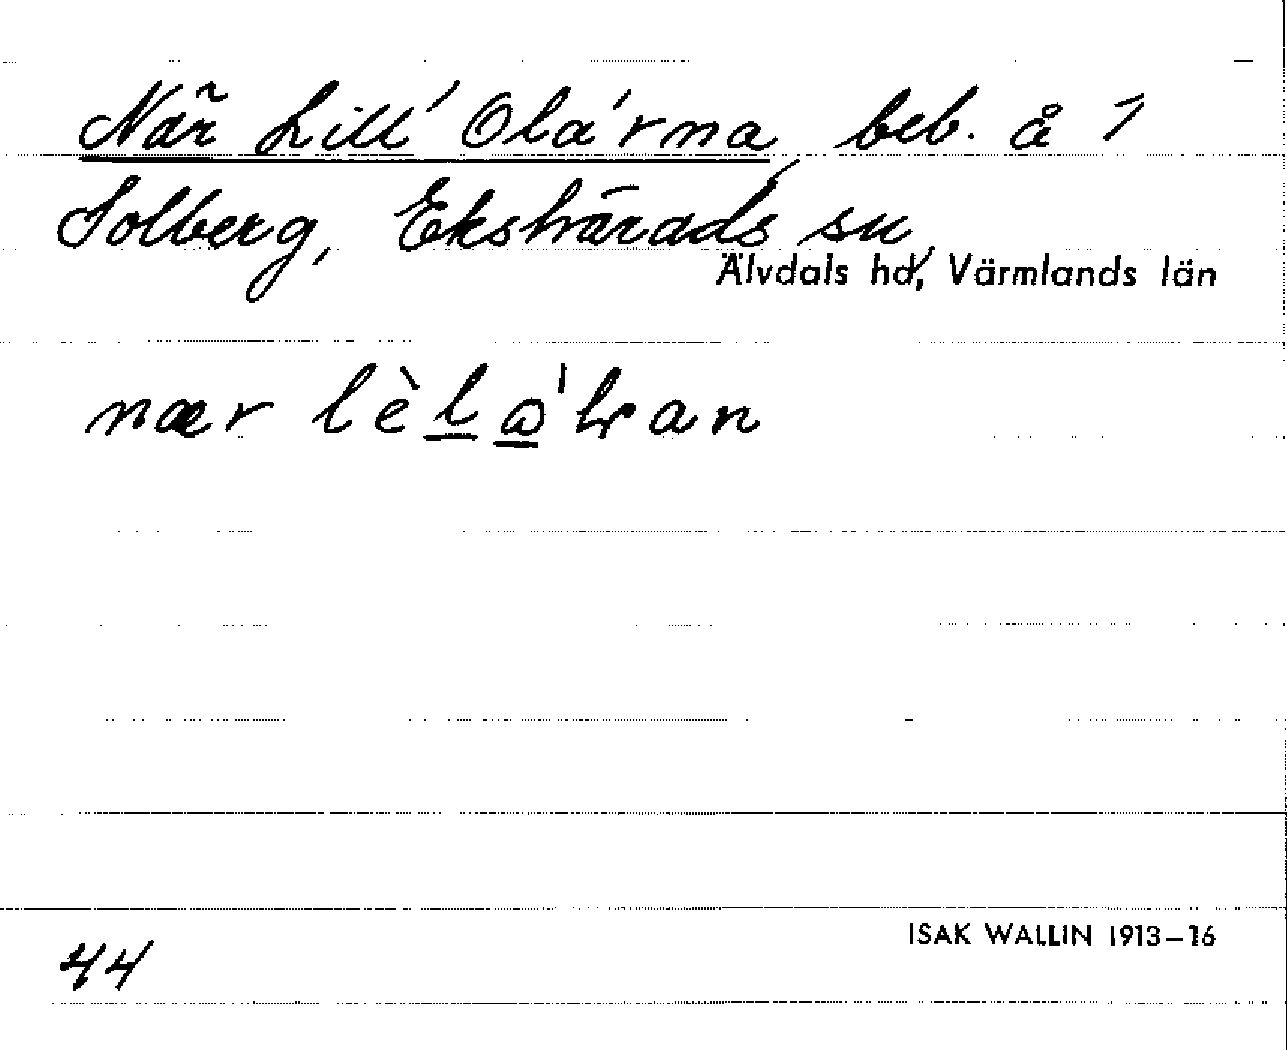 När Lill' Ola'rna beb. å 1
Solberg, Ekshärads sn,
Älvdals hd, Värmlands län
nær lèl
44
ISAK WALLIN 1913–16